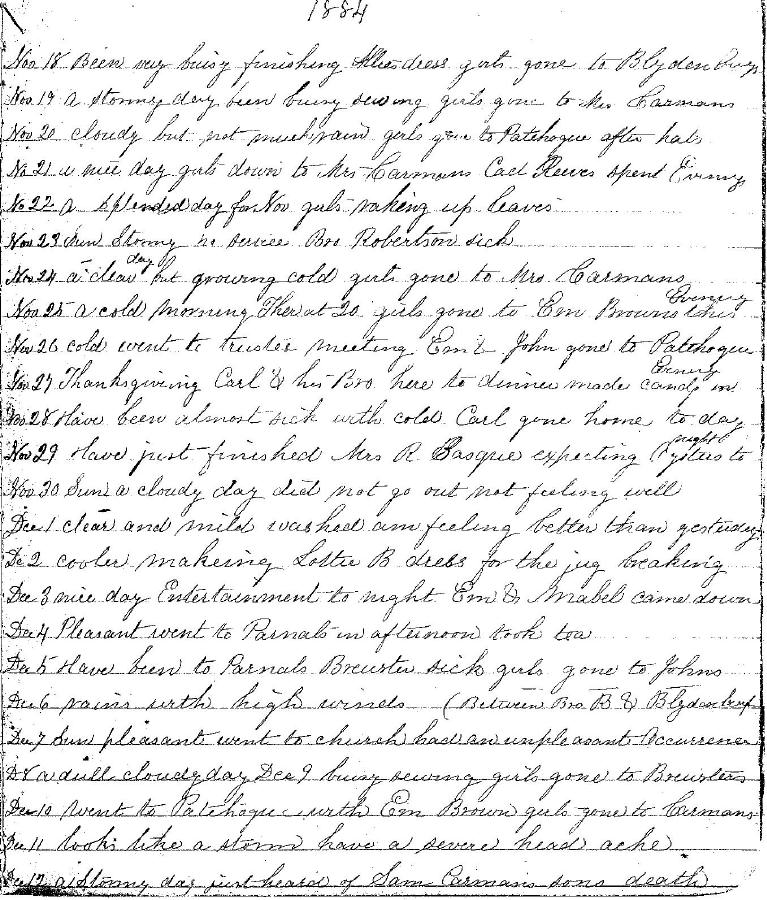 1884
Nov 18 Been very buisy finishing dress girls gone to Blyden
Nov 19 a stormy day been buisy sewing girls gone to Mrs Carmans
Nov 20 cloudy but not much rain girls gone to Patchogue after hats
No 21 a nice day girls down to Mrs Carmans Carl Reeves spend Evening
No 22 a splended day for Nov girls raking up leaves
Nov 23 Sun Stormy no service Bro Robertson sick
Nov 24 a clear day but growing cold girls gone to Mrs Carmans
Nov 25 a cold morning Ther at 20 girls gone to Em Browns this Evening
Nov 26 cold went to trustee meeting Em & John gone to Patchogue
Nov 27 Thanksgiving Carl & his Bro here to dinner made candy in Evening
Nov 28 Have been almost sick with cold Carl gone home to day
Nov 29 Have just finished Mrs R Basque expecting to night
Nov 30 Sun a cloudy day did not go out not feeling well
Dec 1 clear and mild washed am feeling better than yesterday
De 2 cooler makeing Lottie B dress for the jug breaking
Dec 3 nice day Entertainment to night Em & Mabel came down
Dec 4 Pleasant went to Parnals in afternoon took tea
Dec 5 Have been to Parnals Brewster sick girls gone to Johns
Dec 6 rains with high winds (Between Bro R & Blydenburg
Dec 7 Sun pleasant went to church had an unpleasant Occurrence
D 8 a dull cloudy day Dec 9 buisy sewing girls gone to Brewsters
Dec 10 Went to Patchogue with Em Brown girls gone to Carmans
Dec 11 looks like a storm have a severe head ache
Dec 12 a Stormy day just heard of Sam Carmans sons death